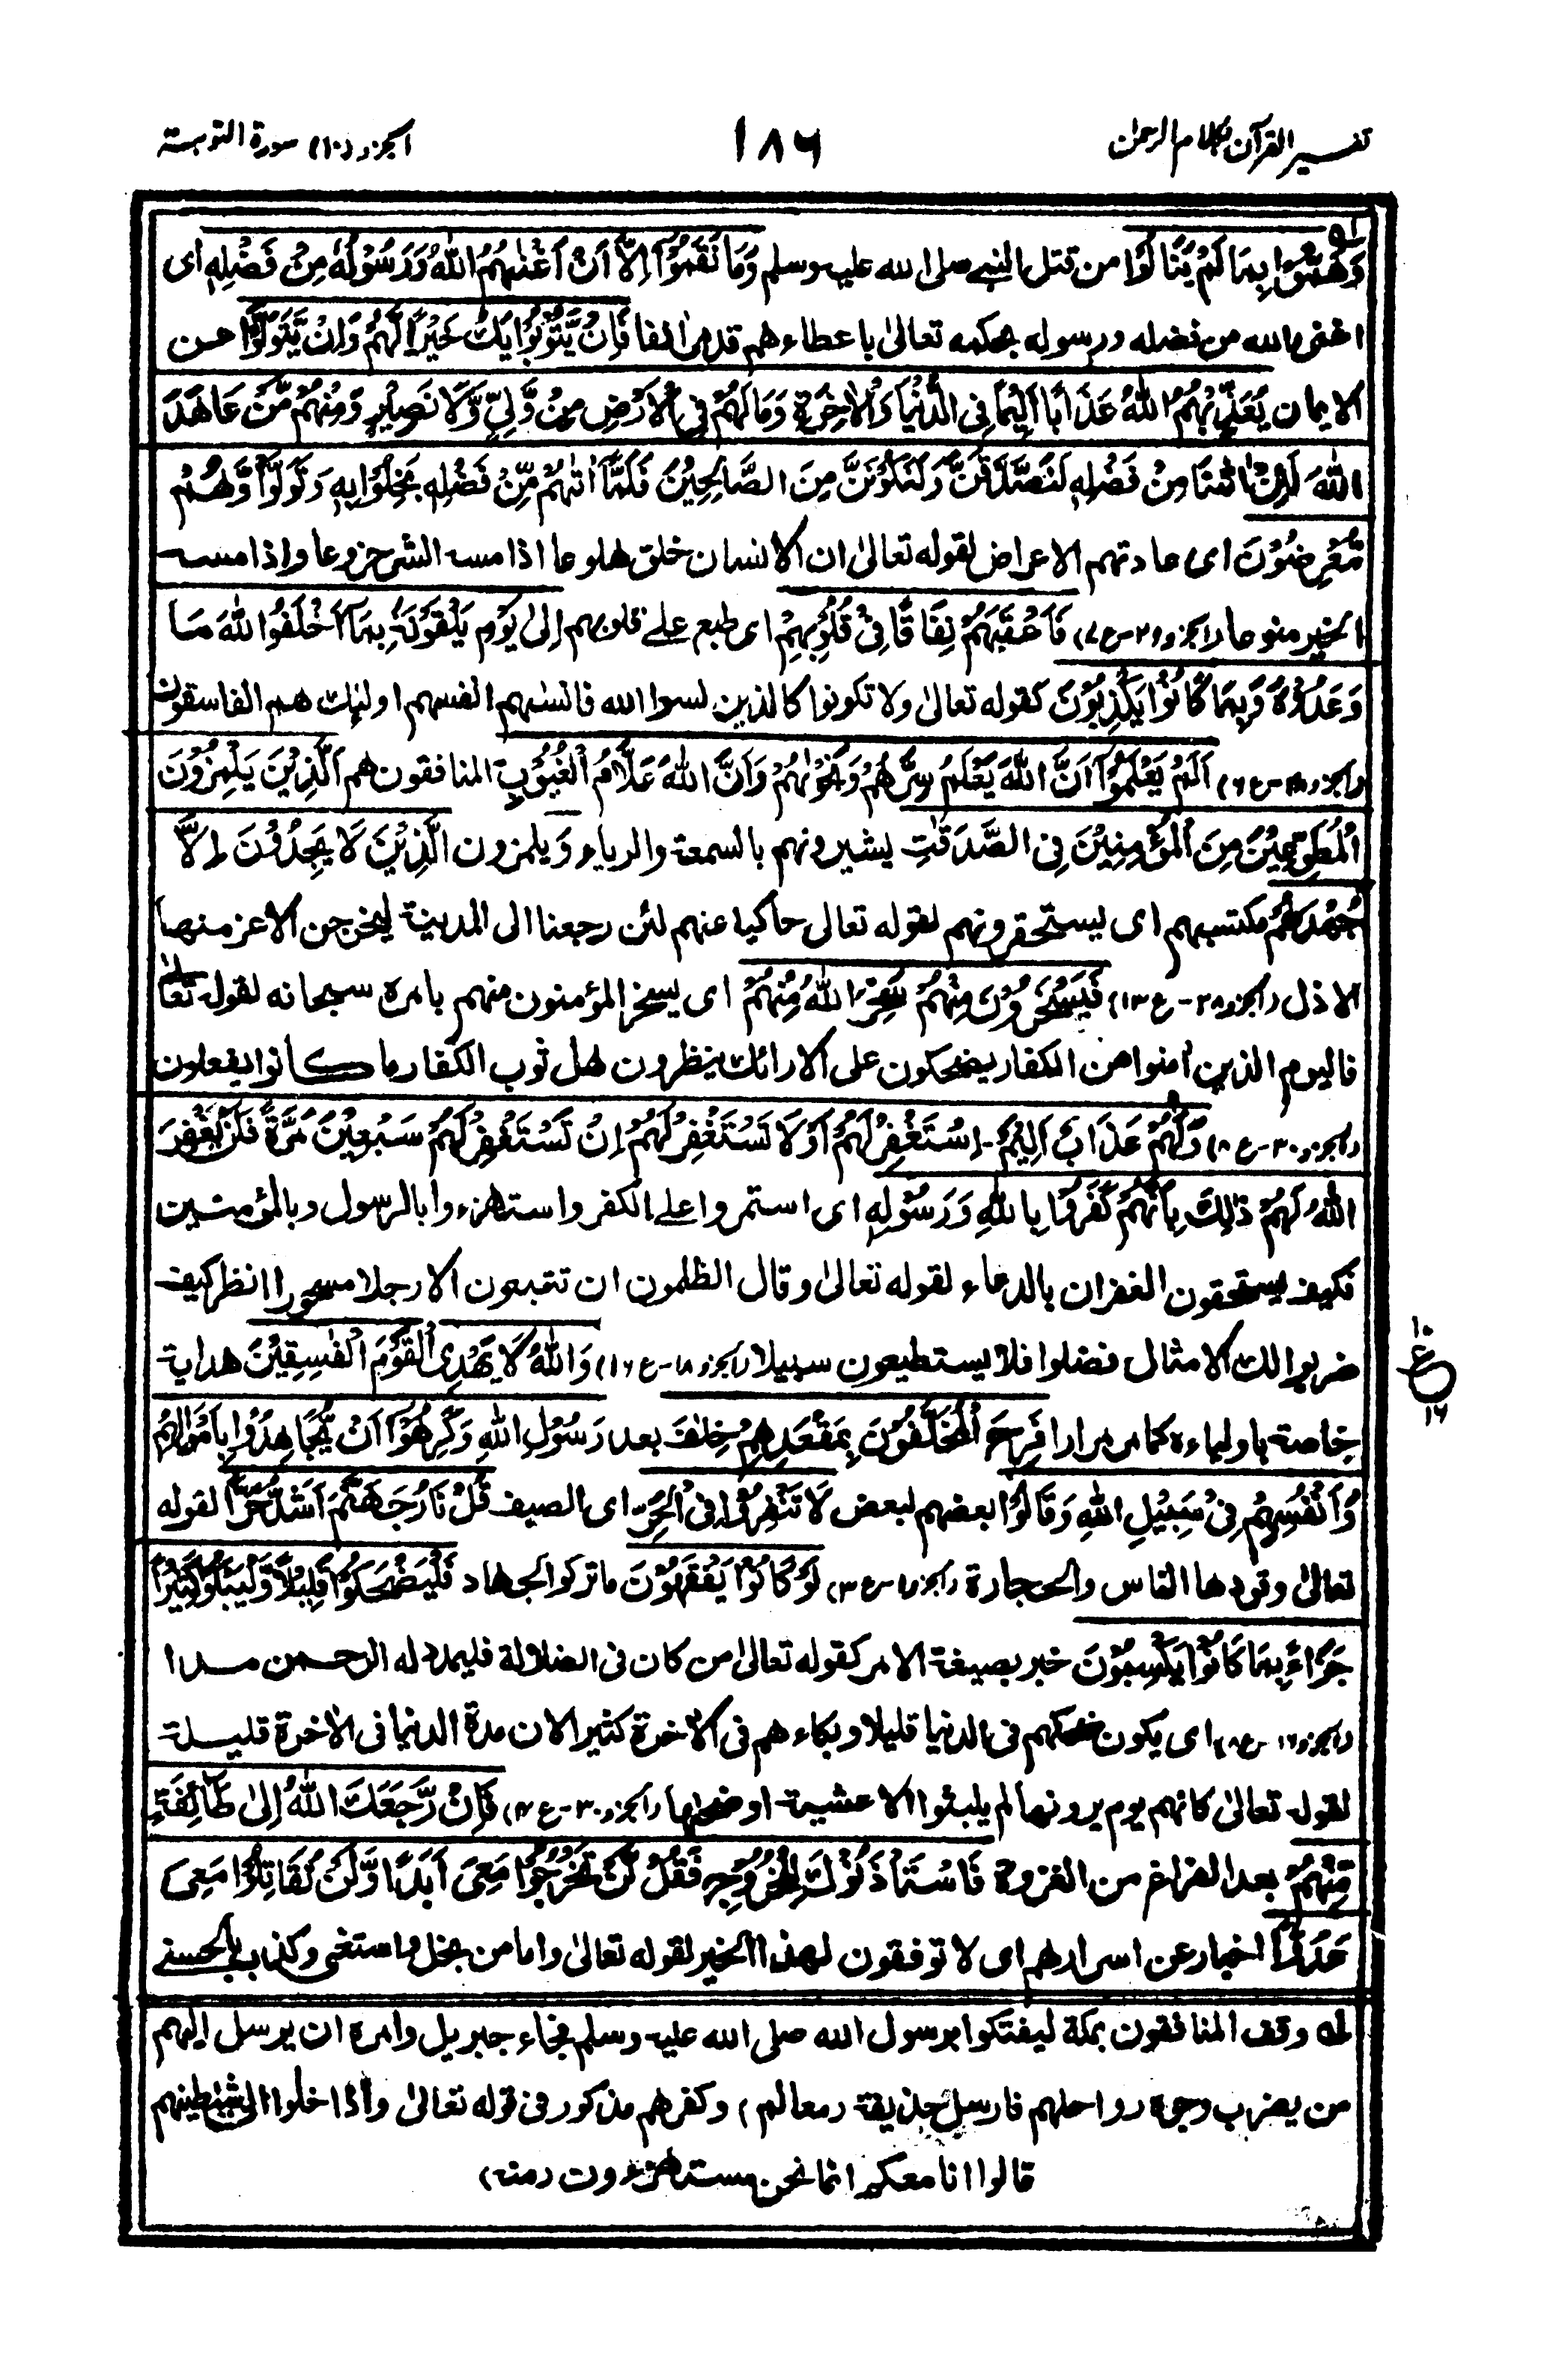 تفسير القرآن بكلام الرحمن
١٨٦
الجزء (١٠) سورة التوبة
وَهَمُّوْا بِمَا لَمْ يَنَالُوْا من قتل النبي صلى الله عليه وسلم وَمَا نَقَمُوْٓا اِلَّآ اَنْ اَغْنٰىهُمُ اللّٰهُ وَرَسُوْلُهٗ مِنْ فَضْلِهٖ اى
اغنى الله من فضله ورسوله بحكمه تعالىٰ باعطاءهم قدمر انفا فَاِنْ يَّتُوْبُوْا يَكُ خَيْرًا لَّهُمْ وَاِنْ يَّتَوَلَّوْا عن
الايمان يُعَذِّبْهُمُ اللّٰهُ عَذَابًا اَلِيْمًا فِى الدُّنْيَا وَالْاٰخِرَةِ وَمَا لَهُمْ فِى الْاَرْضِ مِنْ وَّلِىٍّ وَّلَا نَصِيْرٍ وَمِنْهُمْ مَّنْ عَاهَدَ
اللّٰهَ لَئِنْ اٰتٰىنَا مِنْ فَضْلِهٖ لَنَصَّدَّقَنَّ وَلَنَكُوْنَنَّ مِنَ الصَّالِحِيْنَ فَلَمَّآ اٰتٰىهُمْ مِّنْ فَضْلِهٖ بَخِلُوْا بِهٖ وَتَوَلَّوْا وَّهُمْ
مُّعْرِضُوْنَ اى عادتهم الاعراض لقوله تعالىٰ ان الانسان خلق هلوعا اذا مسه الشر جزوعا واذا مسه
الخير منوعا (الجزء ٢٩-ع٧) فَاَعْقَبَهُمْ نِفَاقًا فِىْ قُلُوْبِهِمْ اى طبع علے قلوبهم اِلىٰ يَوْمِ يَلْقَوْنَهٗ بِمَآ اَخْلَفُوا اللّٰهَ مَا
وَعَدُوْهُ وَبِمَا كَانُوْا يَكْذِبُوْنَ كقوله تعالىٰ ولا تكونوا كالذين نسوا الله فانسٰهم انفسهم اولئك هم الفاسقون
(الجزء ٢٨-ع٦) اَلَمْ يَعْلَمُوْٓا اَنَّ اللّٰهَ يَعْلَمُ سِرَّهُمْ وَنَجْوٰىهُمْ وَاَنَّ اللّٰهَ عَلَّامُ الْغُيُوْبِ المنافقون هم اَلَّذِيْنَ يَلْمِزُوْنَ
الْمُطَّوِّعِيْنَ مِنَ الْمُؤْمِنِيْنَ فِى الصَّدَقٰتِ يشيرونهم بالسمعة والرياء وَيلمزون الَّذِيْنَ لَا يَجِدُوْنَ اِلَّا
جُهْدَهُمْ مكتسبهم اى يستحقرونهم لقوله تعالى حاكيا عنهم لئن رجعنا الى المدينة ليخرجن الاعز منها
الاذل (الجزء ٢٨-ع١٣) فَيَسْخَرُوْنَ مِنْهُمْ سَخِرَ اللّٰهُ مِنْهُمْ اى يسخر المؤمنون منهم بامره سبحانه لقوله تعالىٰ
فاليوم الذين اٰمنوا من الكفار يضحكون على الارائك ينظرون هل ثوب الكفار ما كانوا يفعلون
(الجزء ٣٠-ع٨) وَلَهُمْ عَذَابٌ اَلِيْمٌ- اِسْتَغْفِرْ لَهُمْ اَوْ لَا تَسْتَغْفِرْ لَهُمْ اِنْ تَسْتَغْفِرْ لَهُمْ سَبْعِيْنَ مَرَّةً فَلَنْ يَّغْفِرَ
اللّٰهُ لَهُمْ ذٰلِكَ بِاَنَّهُمْ كَفَرُوْا بِاللّٰهِ وَرَسُوْلِهٖ اى استمروا على الكفر واستهزءوا بالرسول وبالمؤمنين
فكيف يستحقون الغفران بالدعاء لقوله تعالىٰ وقال الظلمون ان تتبعون الا رجلا مسحورا انظر كيف
ضربوا لك الامثال فضلوا فلا يستطيعون سبيلا (الجزء ١٨-ع١٦) وَاللّٰهُ لَا يَهْدِى الْقَوْمَ الْفٰسِقِيْنَ هداية
خاصة باولياءه كما مر مرارا فَرِحَ الْمُخَلَّفُوْنَ بِمَقْعَدِهِمْ خِلٰفَ بعد رَسُوْلِ اللّٰهِ وَكَرِهُوْٓا اَنْ يُّجَاهِدُوْا بِاَمْوَالِهِمْ
وَاَنْفُسِهِمْ فِىْ سَبِيْلِ اللّٰهِ وَقَالُوْا بعضهم لبعض لَا تَنْفِرُوْا فِى الْحَرِّ اى الصيف قُلْ نَارُ جَهَنَّمَ اَشَدُّ حَرًّا لقوله
تعالىٰ وقودها الناس والحجارة (الجزء ١-ع٣) لَوْ كَانُوْا يَفْقَهُوْنَ ما تركوا الجهاد فَلْيَضْحَكُوْا قَلِيْلًا وَّلْيَبْكُوْا كَثِيْرًا
جَزَآءً بِمَا كَانُوْا يَكْسِبُوْنَ خبر بصيغة الامر كقوله تعالىٰ من كان فى الضلالة فليمدد له الرحمن مدا
(الجزء ١٦-ع٨) اى يكون ضحكهم فى الدنيا قليلا وبكاءهم فى الاٰخرة كثيرا لان مدة الدنيا فى الاٰخرة قليلة
لقوله تعالىٰ كانهم يوم يرونها لم يلبثوا الا عشية او ضحٰها (الجزء ٣٠-ع٤) فَاِنْ رَّجَعَكَ اللّٰهُ اِلىٰ طَآئِفَةٍ
مِّنْهُمْ بعد الفراغ من الغزوة فَاسْتَاْذَنُوْكَ لِلْخُرُوْجِ فَقُلْ لَّنْ تَخْرُجُوْا مَعِىَ اَبَدًا وَّلَنْ تُقَاتِلُوْا مَعِىَ
عَدُوًّا اخبار عن اسرارهم اى لا توفقون لهذا الخير لقوله تعالىٰ واما من بخل واستغنى وكذب بالحسنے
ع
١٦
لـه وقف المنافقون بمكة ليفتكوا برسول الله صلى الله عليه وسلم فجاء جبريل وامره ان يرسل اليهم
من يضرب وجوه رواحلهم فارسل حذيفة (معالم) وكفرهم مذكور فى قوله تعالىٰ واذا خلوا الى شيٰطينهم
قالوا انا معكم انما نحن مستهزءون (منه)